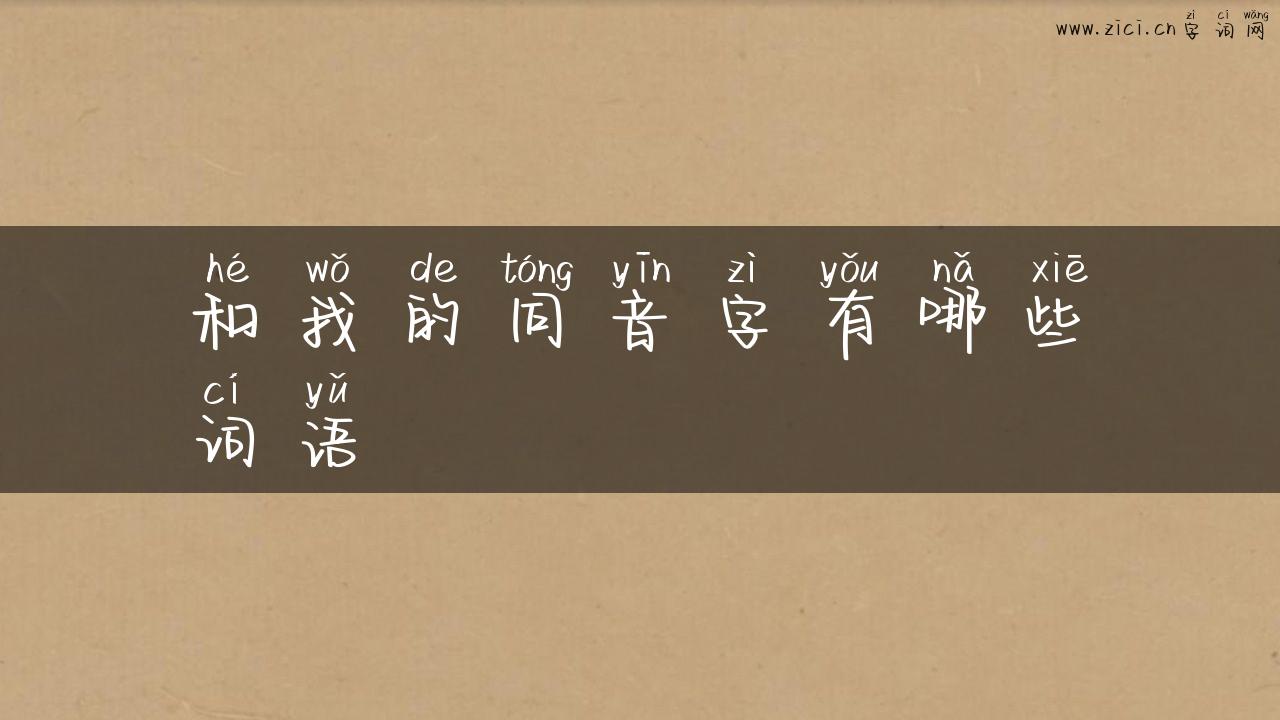 zì cí wǎng
www.zici.cn字词网
hé wǒ de tóng yīn zì yǒu nǎ xiē
和我的同音字有哪些
cí yǔ
词语